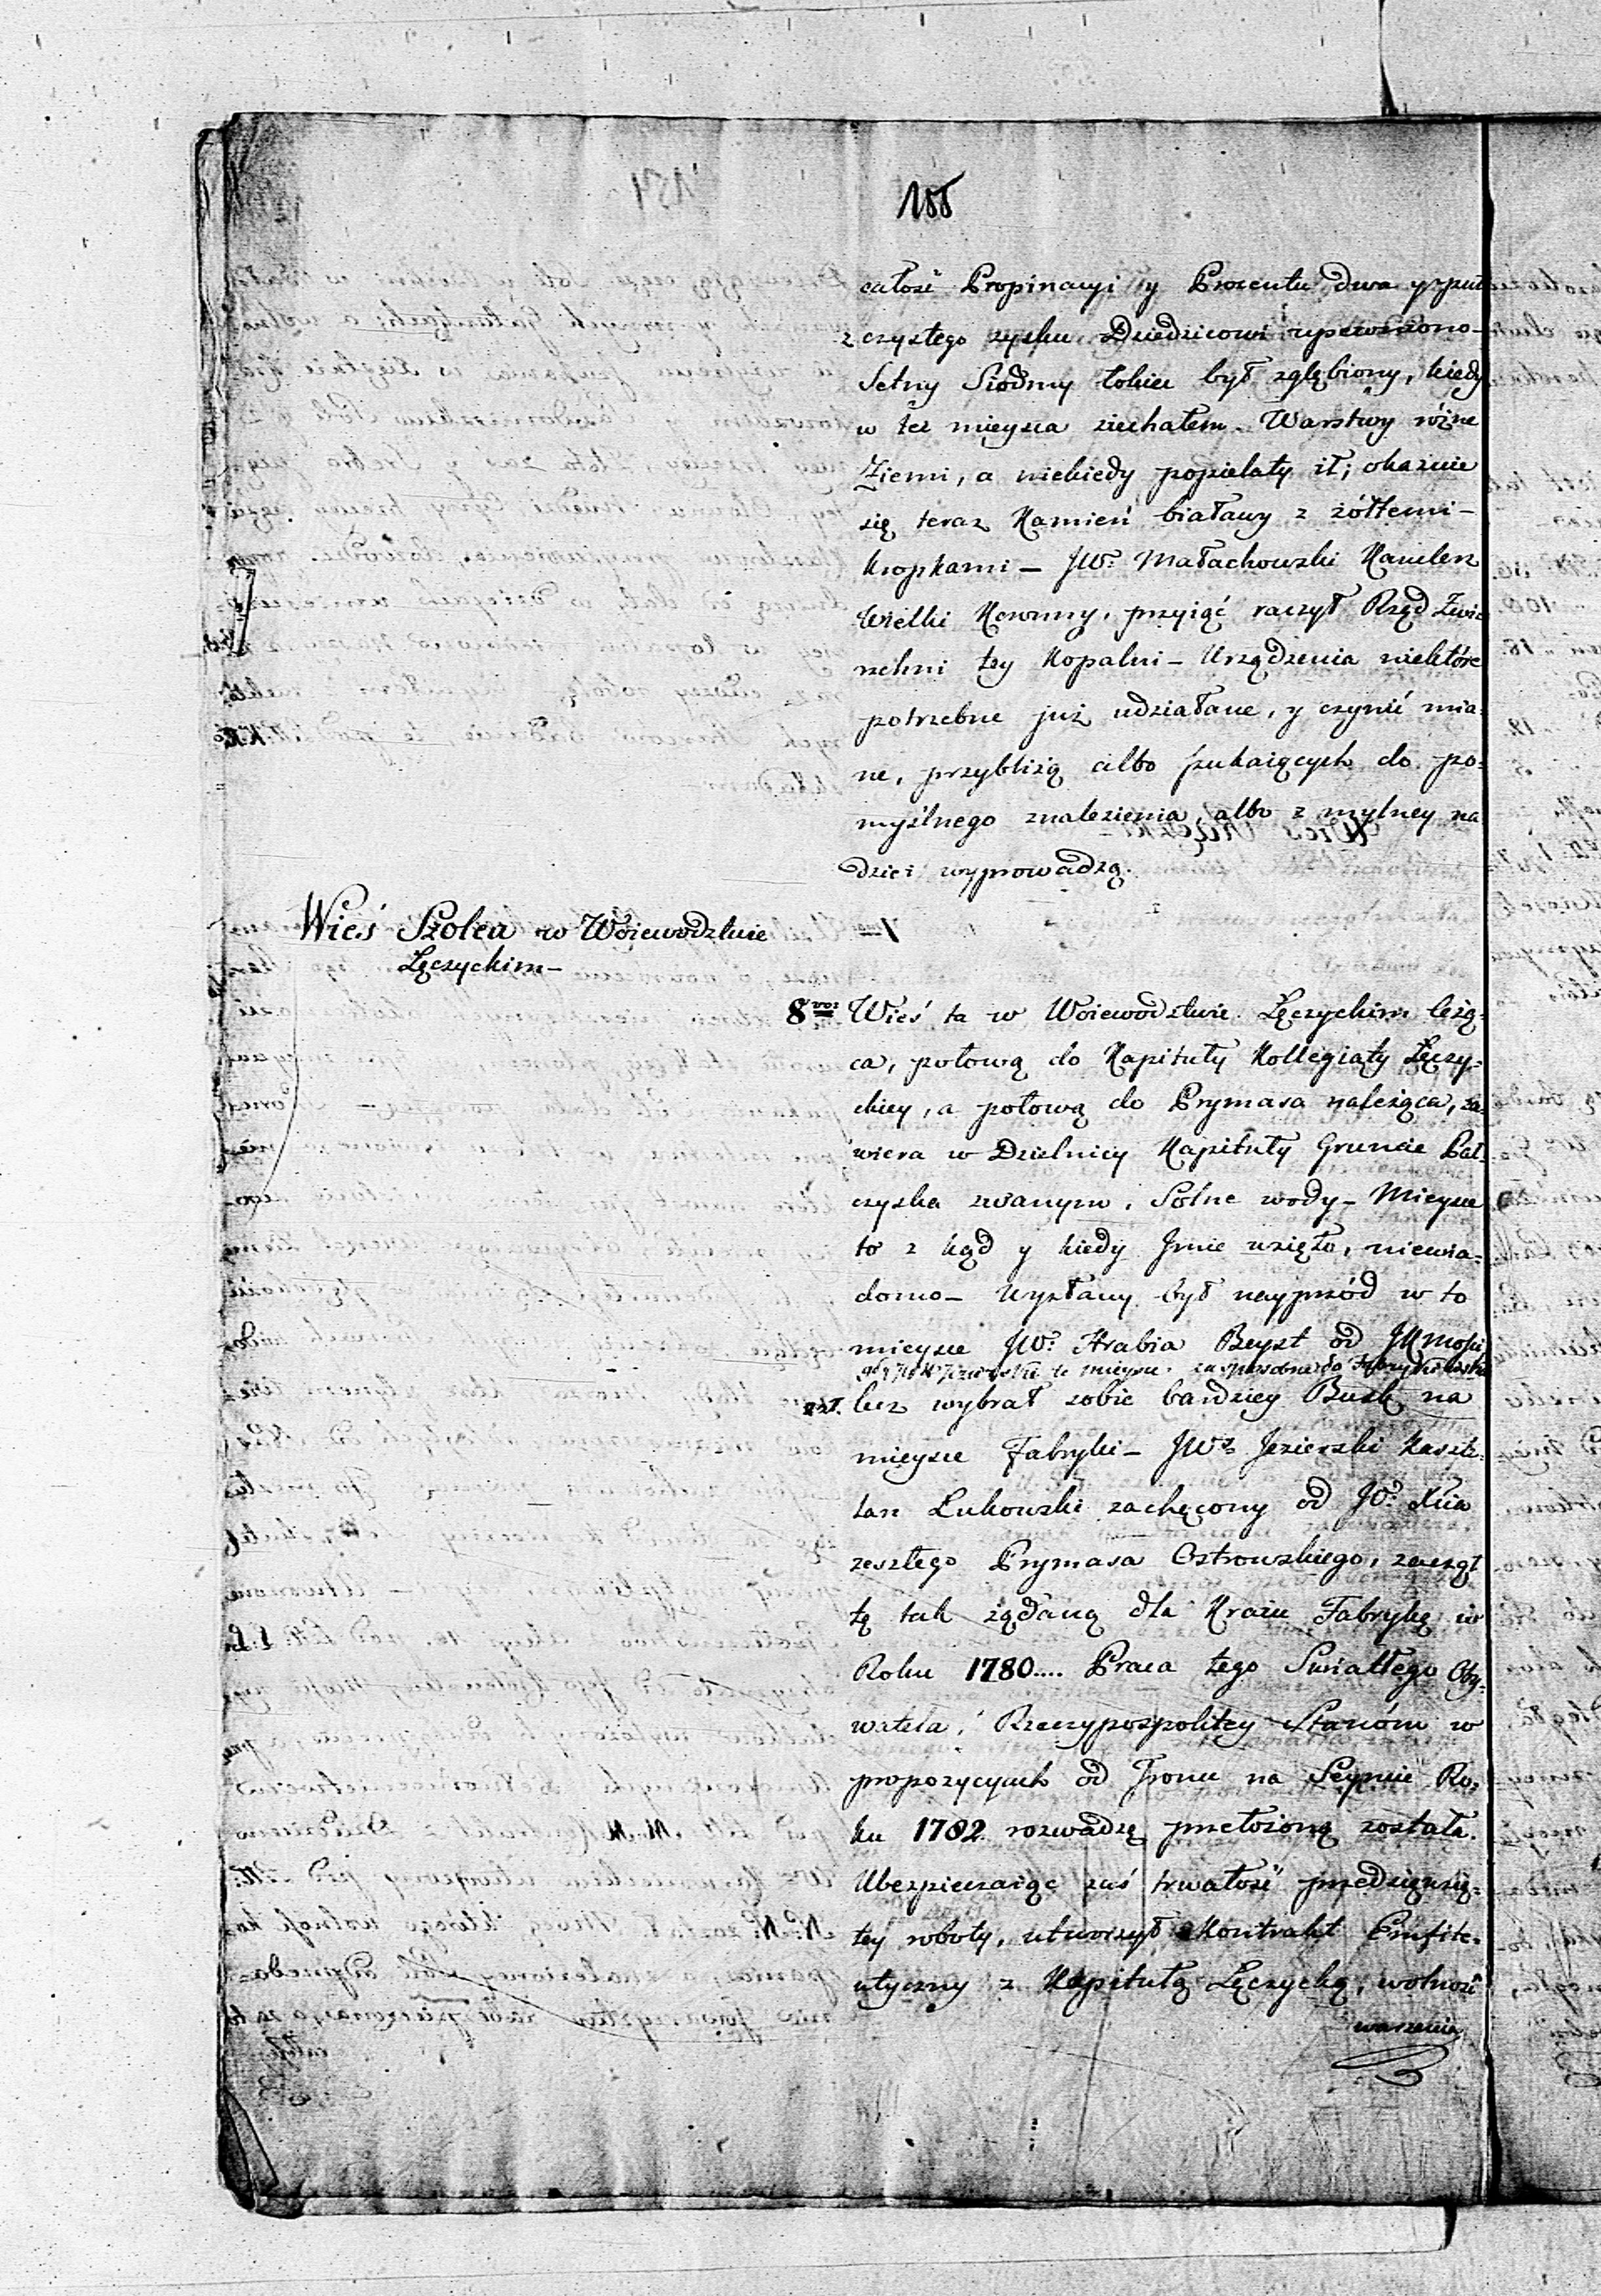 155
całość Propinacyi y Procentu dwa y puł
z czystego zysku Dziedzicowi upewniono_
Setny Siódmy łokieć był zgłębiony, kiedy
w też mieysca ziechałem_ Warstwy różne
Ziemi, a niekiedy popielaty ił; okazuie
się teraz Kamień białawy z żółtemi_
kropkami_ JW: Małachowski Kanclerz
Wielki Koronny, przyiąć raczył Rząd Zwie
rzchni tey Kopalni_ Urządzenia niektóre
potrzebne już udziałane, y czynić mia=
ne, przybliżą albo szukaiących do po=
myślnego znalezienia, albo z mylney na
dziei wyprowadzą.
Wieś Szolca w Woiewodztwie
Łęczyckim_
8vo: Wieś ta w Woiewodztwie Łęczyckim leżą=
ca, połową do Kapituły Kollegiaty Łęczy=
ckiey, a połową do Prymasa należąca, za=
wiera w Dzielnicy Kapituły Gruncie Bał=
czyska zwanym, Solne wody_ Mieysce
to z kąd y kiedy Jmie wzięło, niewia=
domo_ Wysłany był nayprzód w to
mieysce JW: Hrabia Beyst od JKMości
gdy JW Jezierski te mieysce
lecz wybrał sobie bardziey Buskę na
mieysce Fabryki_ JW: Jezierski Kaszte=
lan Łukowski zachęcony od JO: Xcia
zeszłego Prymasa Ostrowskiego, zaczął
tę tak żądaną dla Kraiu Fabrykę w
Roku 1780.... Praca tego Swiatłego Oby=
watela, Rzeczypospolitey Stanóm w
propozycyach od Tronu na Seymie Ro=
ku 1782 rozwadzę przełożoną została.
Ubezpieczaiąc zaś trwałość przedsięwzię=
tey roboty, utworzył Kontrakt Emfite=
utyczny z Kapitułą Łęczycką, wolność
warzenia